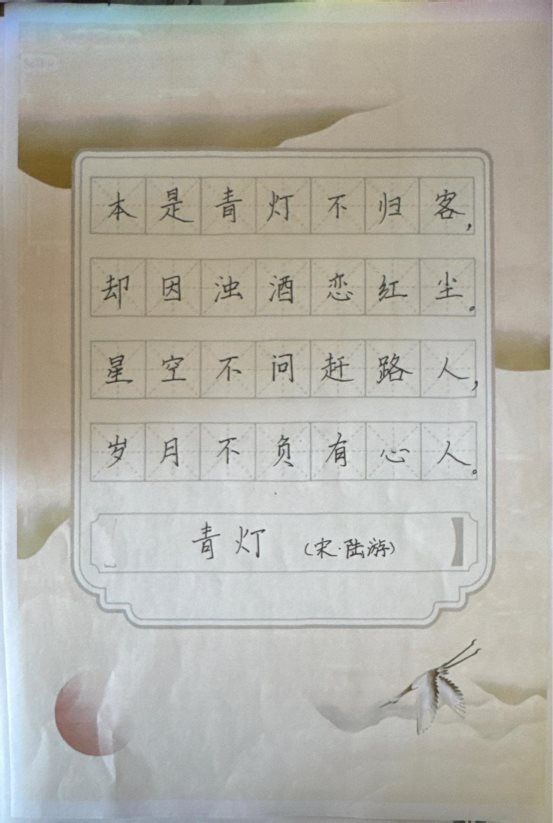 本是青灯不归客，
却因浊酒恋红尘。
星空不问赶路人，
岁月不负有心人。
青灯（宋·陆游）